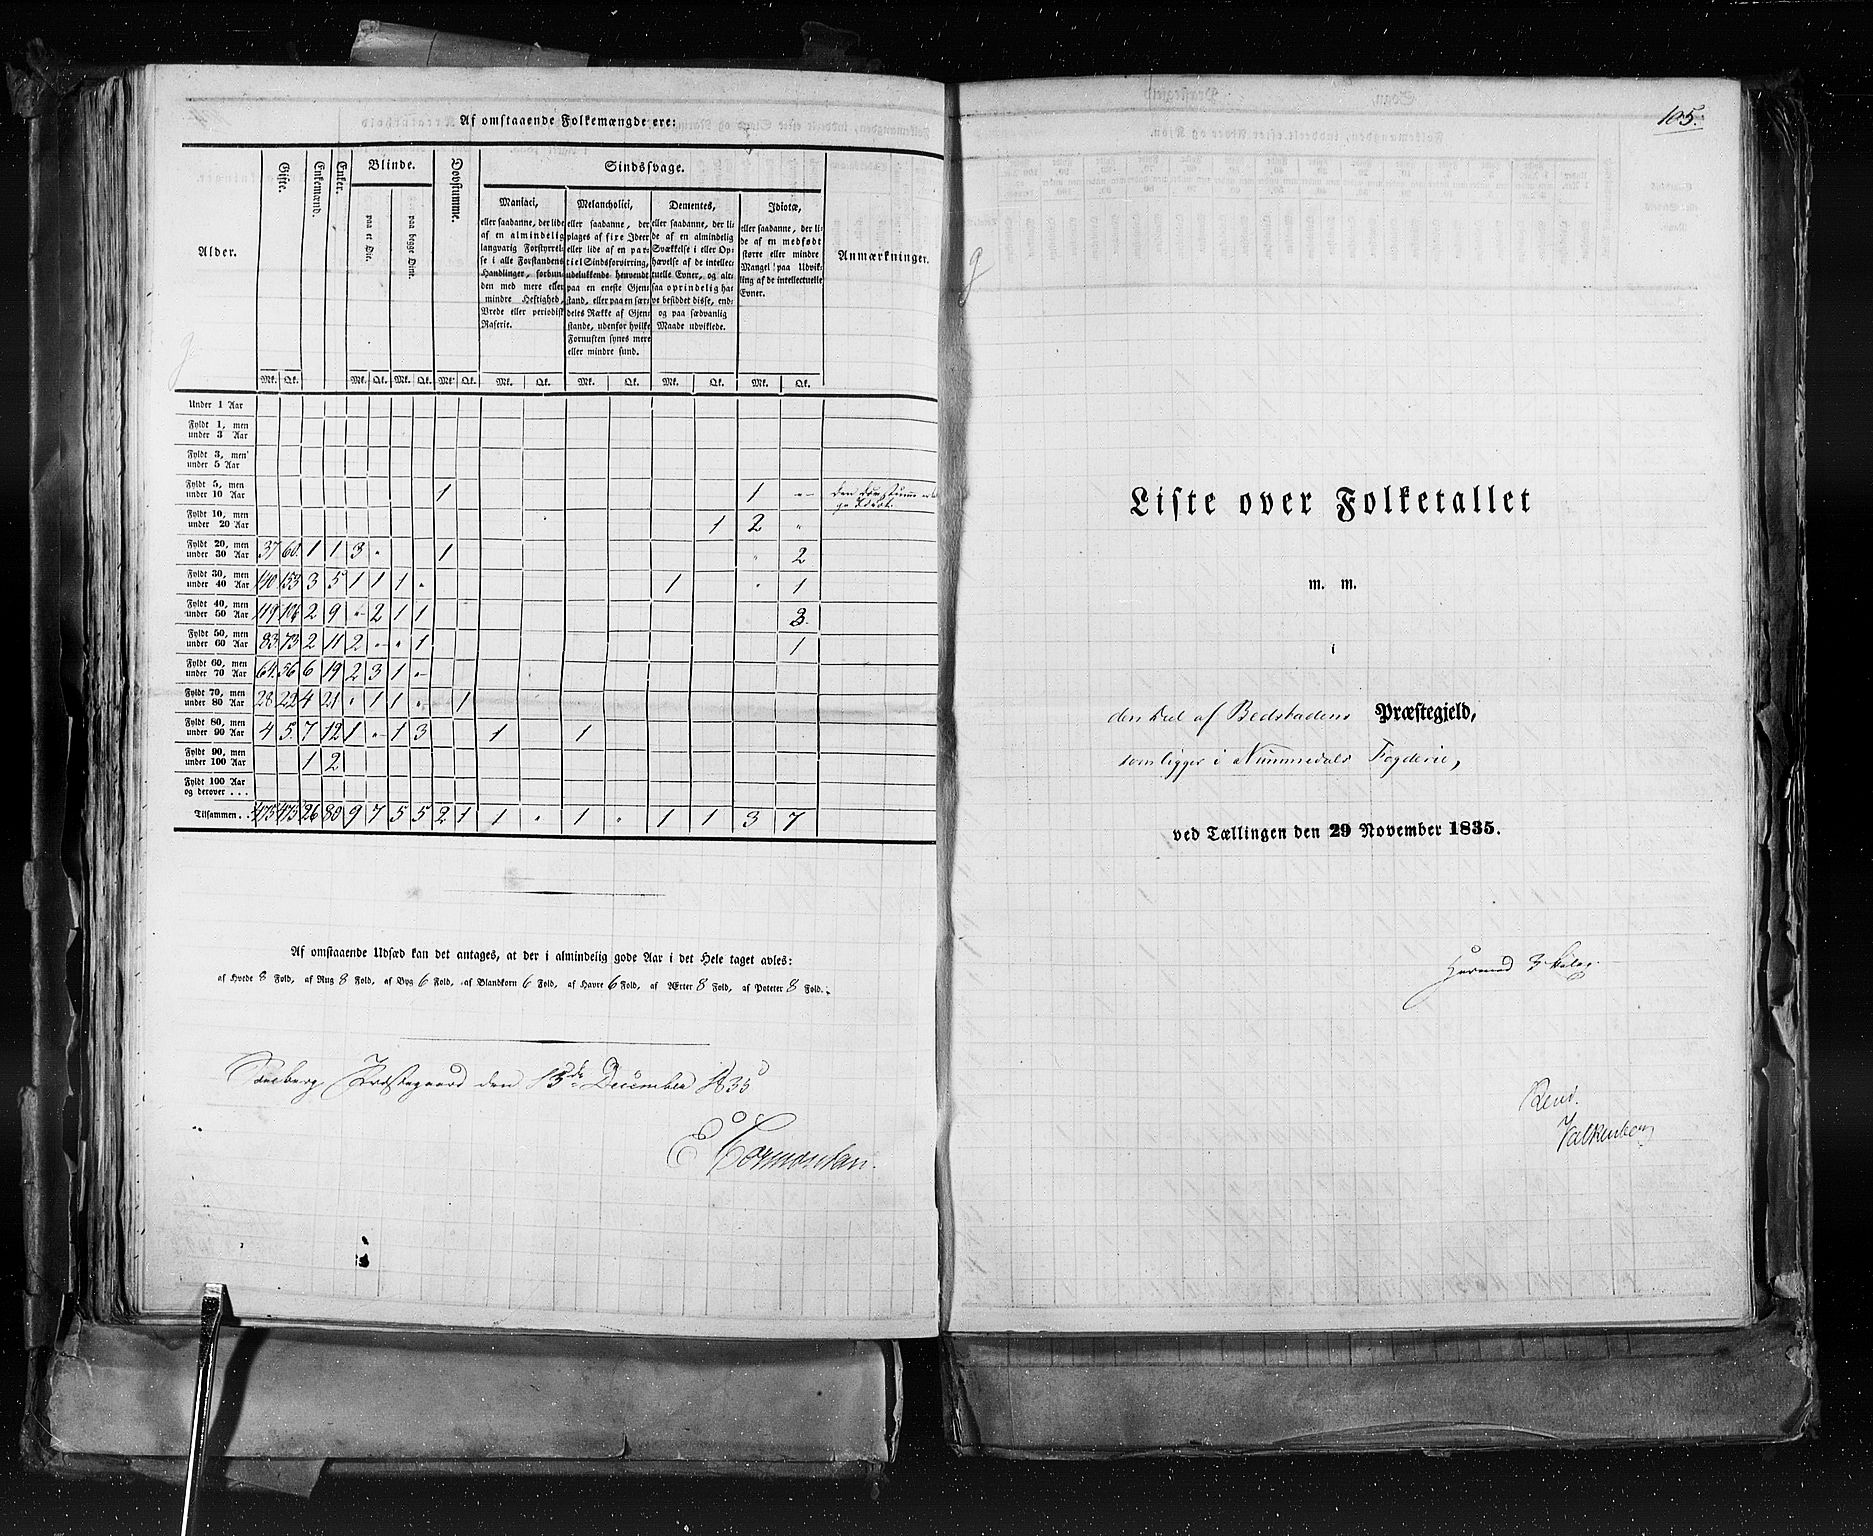 Af omstaaende Folkemængde ere:
Alder.
Gifte.
Enkemænd.
Enker.
Blinde.
paa et Øie.
paa begge Øine.
Døvstumme.
Sindssvage.
Maniaci,
eller saadanne, der lide
af en almindelig
langvarig Forstyrrel-
se i alle Forstandens
Handlinger, forbun-
den med mere eller
mindre Heftighed,
Vrede eller periodisk
Raserie.
Melancholici,
eller saadanne, der
plages af fixe Ideer
eller lide af en par-
tiel Sindsforvirring,
udelukkende henvendt
paa en eneste Gjen-
stand, eller paa en sær-
deles Række af Gjen-
stande, udenfor hvilke
Fornuften synes mere
eller mindre sund.
Dementes,
eller saadanne, der li-
de af en almindelig
Svækkelse i eller Op-
hævelse af de intellec-
tuelle Evner, og alt-
saa oprindelig ha-
ve besiddet disse, end-
og paa sædvanlig
Maade udviklede.
Idiotæ,
eller saadanne, der li-
de af en medfødt
større eller mindre
Mangel paa Udvik-
ling af de intellectuelle
Evner.
Anmærkninger.
Mk. Qk. Mk. Qk. Mk. Qk. Mk. Qk. Mk. Qk. Mk. Qk. Mk. Qk. Mk. Qk.
Under 1 Aar
Fyldt 1, men
under 3 Aar
Fyldt 3, men
under 5 Aar
Fyldt 5, men
under 10 Aar 1 1 "
Den Døvstumme
Fyldt 10, men
under 20 Aar 1 2 "
Fyldt 20, men
under 30 Aar 37 60 1 1 3 " 1 " 2
Fyldt 30, men
under 40 Aar 140 153 3 5 1 1 1 " 1 " 1
Fyldt 40, men
under 50 Aar 119 106 2 9 " 2 1 1 3
Fyldt 50, men
under 60 Aar 83 73 2 11 2 " " 1 1
Fyldt 60, men
under 70 Aar 64 56 6 19 2 3 1 "
Fyldt 70, men
under 80 Aar 28 22 4 21 " 1 1 " 1
Fyldt 80, men
under 90 Aar 4 5 7 12 1 " 1 3 1 1
Fyldt 90, men
under 100 Aar 1 2
Fyldt 100 Aar
og derover . . .
Tilsammen . . 475 475 26 80 9 7 5 5 2 1 1 " 1 " 1 1 3 7
Af omstaaende Udsæd kan det antages, at der i almindelig gode Aar i det Hele taget avles:
af Hvede 8 Fold, af Rug 8 Fold, af Byg 6 Fold, af Blandkorn 6 Fold, af Havre 6 Fold, af Ærter 8 Fold, af Poteter 8 Fold.
Præstegaard den 13de December 1835
105.
Liste over Folketallet
m. m.
i
den Deel af Bedstadens Præstegjeld,
som ligger i Nummedals Fogderie,
ved Tællingen den 29 November 1835.
Hermed 3 Bilag.
Revid.
Falkenberg